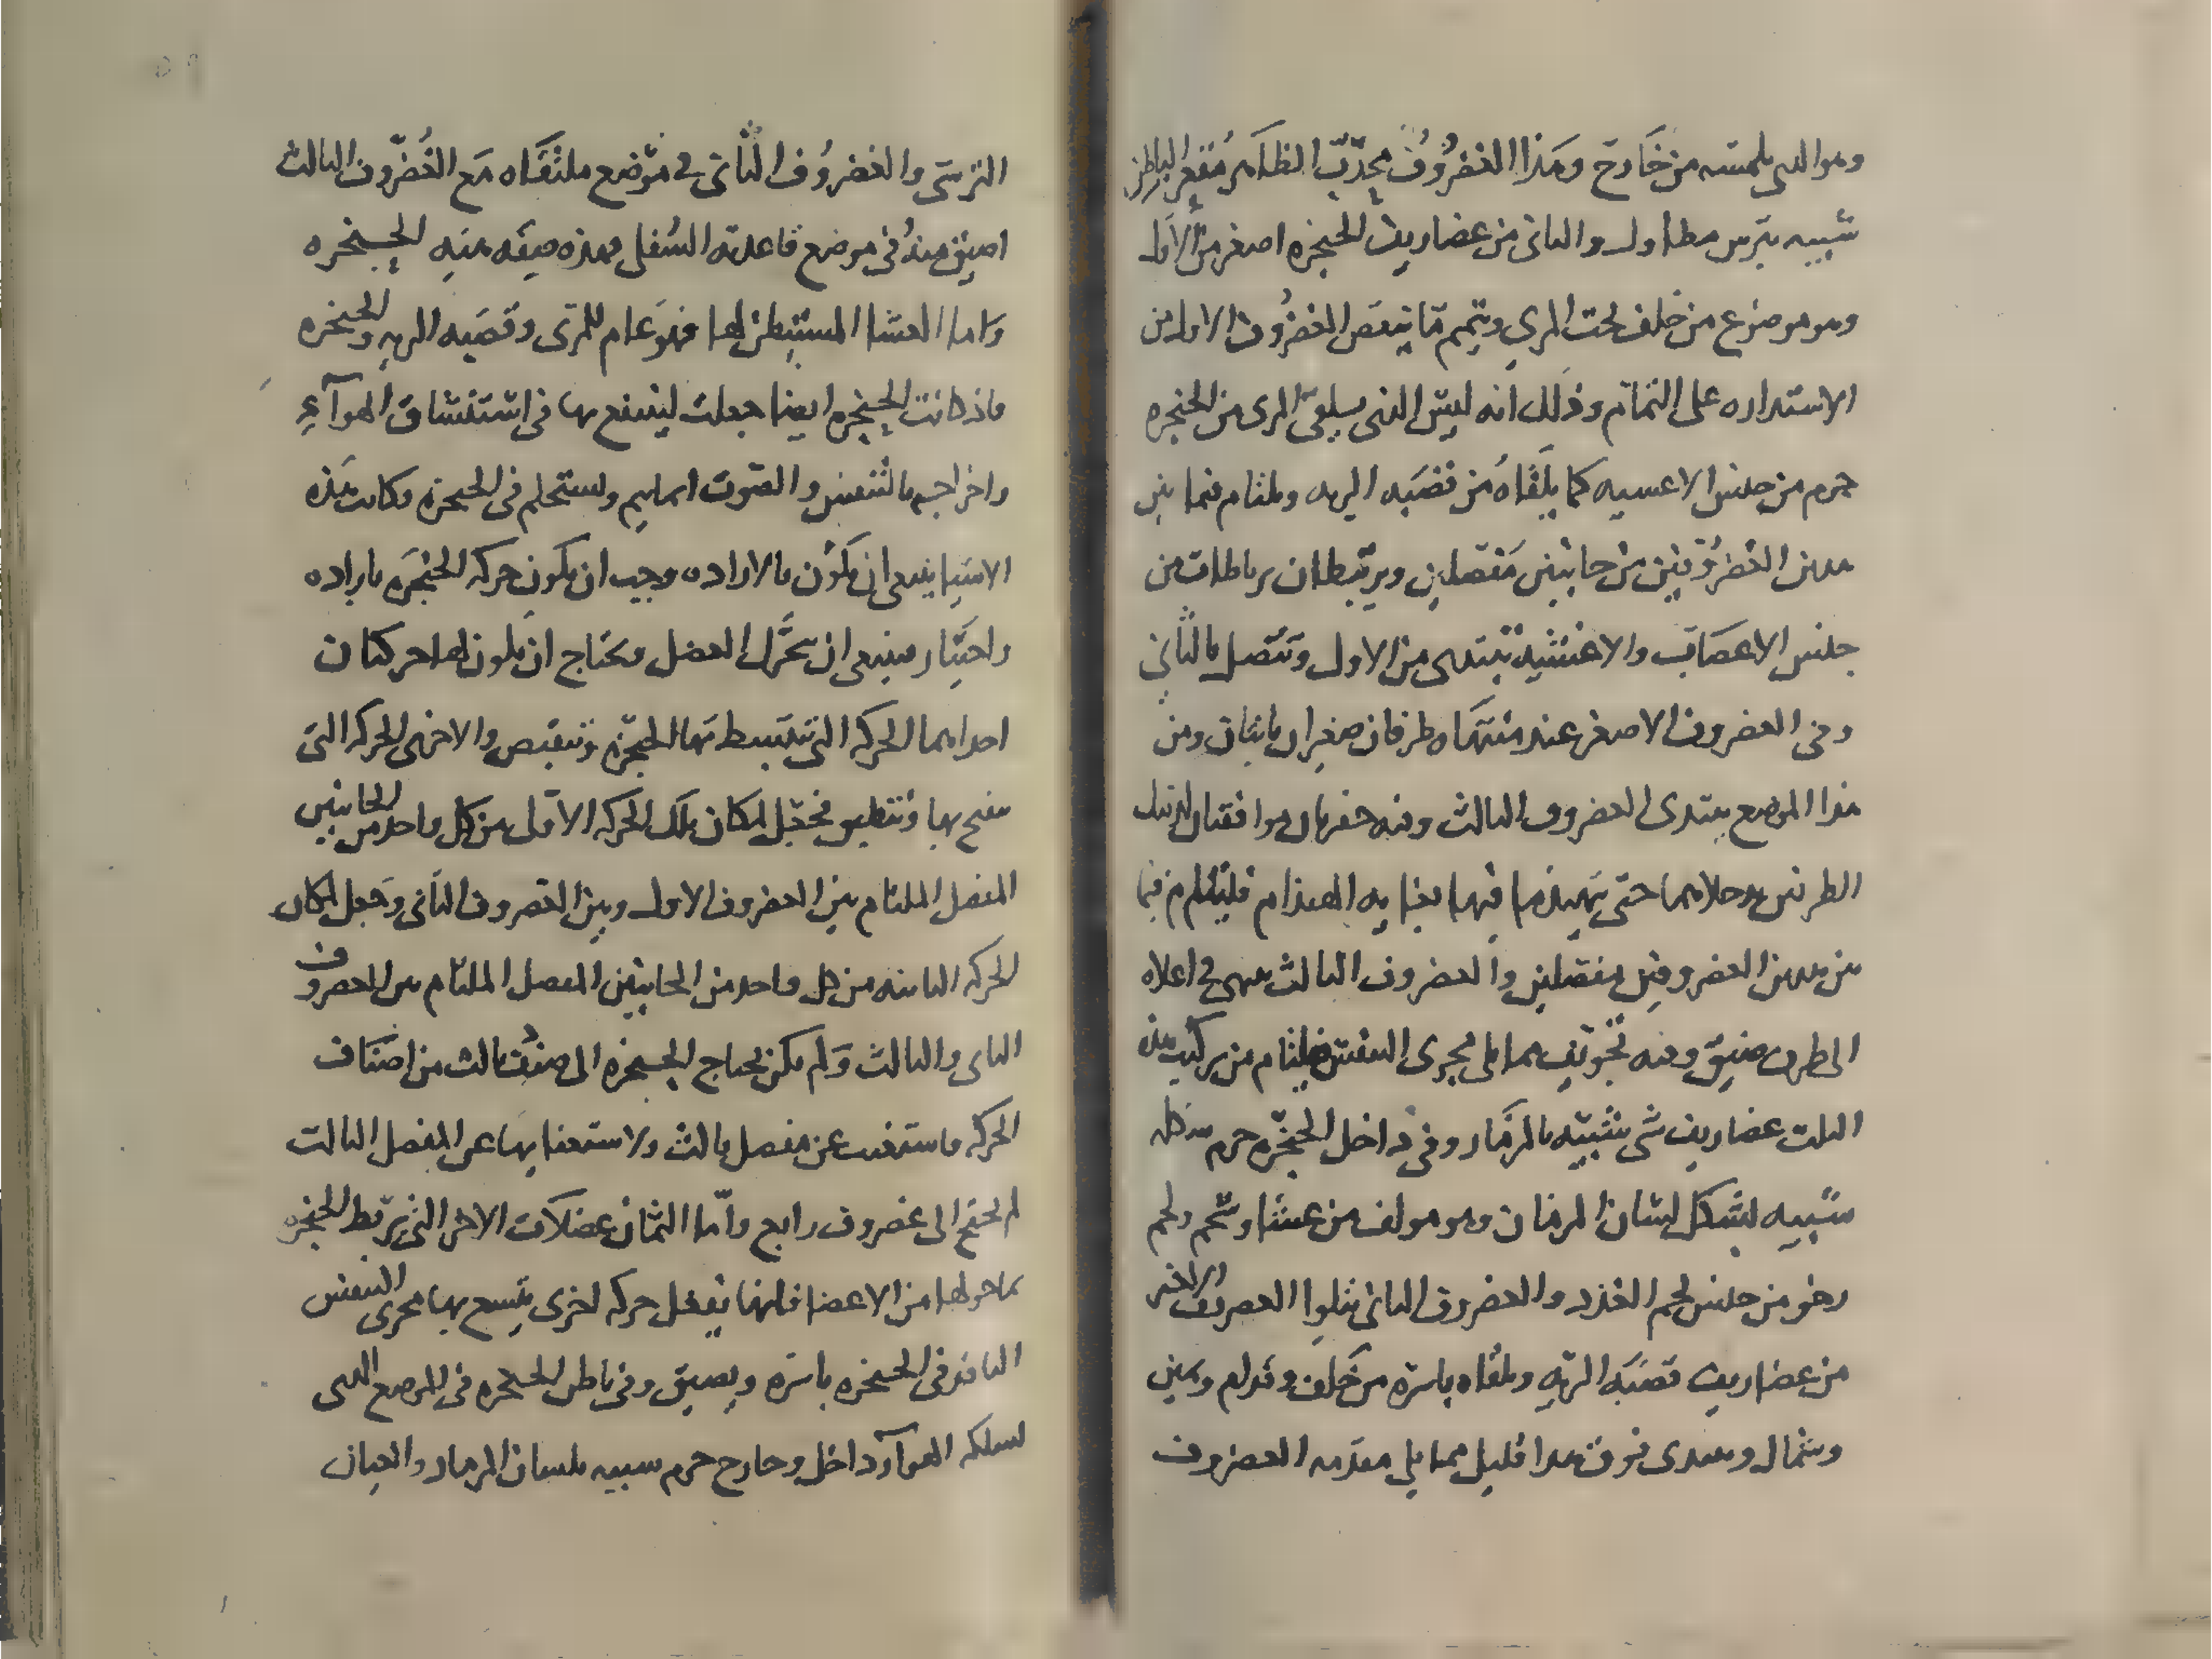 وهو الدى يلمسه من خارج وهذا الغضروف محدّب الظاهر مُقعر الباطن
شبيه بترس مطاول والثانى من غضاريف الحنجره اصغر من الاول
وهو موضوع من خلف تحت المرى ويتمم ما ينقص الغضروف الاول من
الاستداره على التمام وذلك انه ليس الذى يلقى المرى من الحنجره
جرم من جنس الاغشيه كما يلقاه من قصبه الريه ويلتام فيما بين
هدين الغضروفين من جانبين مفصلين ويرتبطان برباطات من
جنس الاعصاب والاغشيه تبتدى من الاول وتتصل بالثانى
وفى الغضروف الاصغر عند منتهاه طرفان صغيران ناتيان ومن
هذا الموضع يبتدى الغضروف الثالث وفيه حفرتان موافقتان لدينك
الطرفين حتى يهندما فيها بغايه الهندام فيلتام فيما
بين هدين الغضروفين مفصلين والغضروف الثالث ينتهى فى اعلاه
الى طرف ضيق وفيه تجويف مما يلى مجرى النفس فيلتام من تركيب هذه
الثلث غضاريف شى شبيه بالمزمار وفى داخل الحنجره جرم شكله
شبيه بشكل لسان المزمار وهو مولف من غشا وشحم ولحم
رخو من جنس لحم الغدد والغضروف الثانى يتلوا الغضروف الاخير
من غضاريف قصبه الريه ويلقاه باسره من خلف وقدام ويمين
وشمال ويبتدى فوق هدا قليل مما يلى مقدمه الغضروف
الترسى والغضروف الثانى فى موضع ملتقاه مع الغضروف الثالث
اضيق منه فى موضع قاعدته السفلى فهذه صيغه بنيه الحنجره
واما الغشا المستبطن لها فهو عام للمرى وقصبه الريه والحنجره
واذ كانت الحنجره ايضا جعلت لينتفع بها فى استنشاق الهوآء
واخراجه بالتنفس والصوت انما يتم ويستحكم فى الحنجره وكانت هذه
الاشيا ينبغى ان يكون بالاراده وجب ان يكون حركه الحنجره باراده
واختيار فينبغى ان تحرك العضل وتحتاج ان يكون لها حركتان
احداهما الحركه التى تنبسط بها الحنجره وتنقبض والاخرى الحركه التى
تنفتح بها وتنطبق فجعل لمكان تلك الحركه الاولى من كل واحد من الجانبين
المفصل الملتام بين الغضروف الاول وبين الغضروف الثانى وجعل لمكان
الحركه الثانيه من كل واحد من الجانبين المفصل الملتام بين الغضروف
الثانى والثالث ولم يكن يحتاج الحنجره الى صنف ثالث من اصناف
الحركه فاستغنت عن مفصل ثالث ولاستغنايها عن المفصل الثالث
لم تحتج الى غضروف رابع وامّا الثمان عضلات الاخر التى تربط الحنجره
بما حولها من الاعضا فانها تفعل حركه اخرى يتسع بها مجرى النفس
النافذ فى الحنجره باسره ويضيق وفى باطن الحنجره فى الموضع الدى
يسلكه الهوآ داخل وخارج جرم شبيه بلسان المزمار والعيان